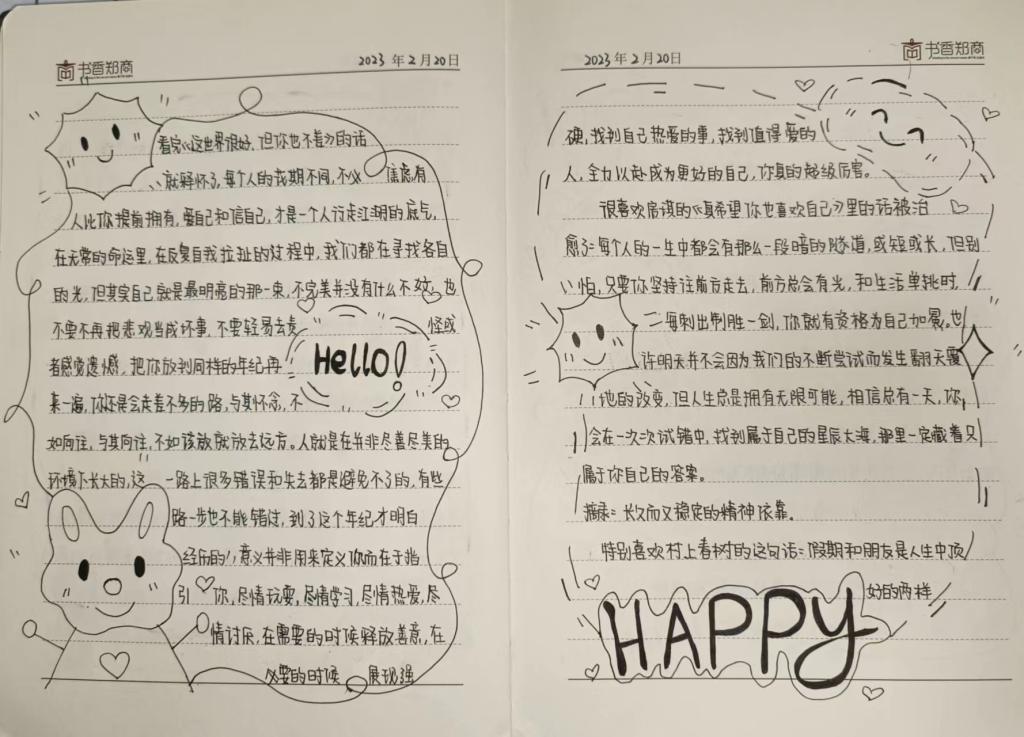 书香郑商
2023 年 2 月 20 日
看完《这世界很好，但你也不差》的话
就释怀了，每个人的花期不同，不必 焦虑有
人比你提前拥有，爱自己和信自己，才是一个人行走江湖的底气，
在无常的命运里，在反复自我拉扯的过程中，我们都在寻找各自
的光，但其实自己就是最明亮的那一束，不完美并没有什么不好，也
不要不再把悲观当成坏事，不要轻易去责 怪或
者感觉遗憾，把你放到同样的年纪再
Hello!
来一遍，你还是会走差不多的路，与其怀念，不
如向往，与其向往，不如该放就放去远方。人就是在并非尽善尽美的
环境下长大的，这 一路上很多错误和失去都是避免不了的，有些
路一步也不能错过，到了这个年纪才明白
经历的意义并非用来定义你而在于指
引 你，尽情玩耍，尽情学习，尽情热爱，尽
情讨厌，在需要的时候释放善意，在
必要的时候 展现强
2023 年 2 月 20 日
书香郑商
硬，找到自己热爱的事，找到值得爱的
人，全力以赴成为更好的自己，你真的超级厉害。
很喜欢房琪的《真希望你也喜欢自己》里的话被治
愈了：每个人的一生中都会有那么一段暗的隧道，或短或长，但别
怕，只要你坚持往前方走去，前方总会有光，和生活单挑时，
每刺出制胜一剑，你就有资格为自己加冕。也
许明天并不会因为我们的不断尝试而发生翻天覆
地的改变，但人生总是拥有无限可能，相信总有一天，你
会在一次次试错中，找到属于自己的星辰大海，那里一定藏着只
属于你自己的答案。
摘录：长久而又稳定的精神依靠。
特别喜欢村上春树的这句话：假期和朋友是人生中顶
好的两样
HAPPY